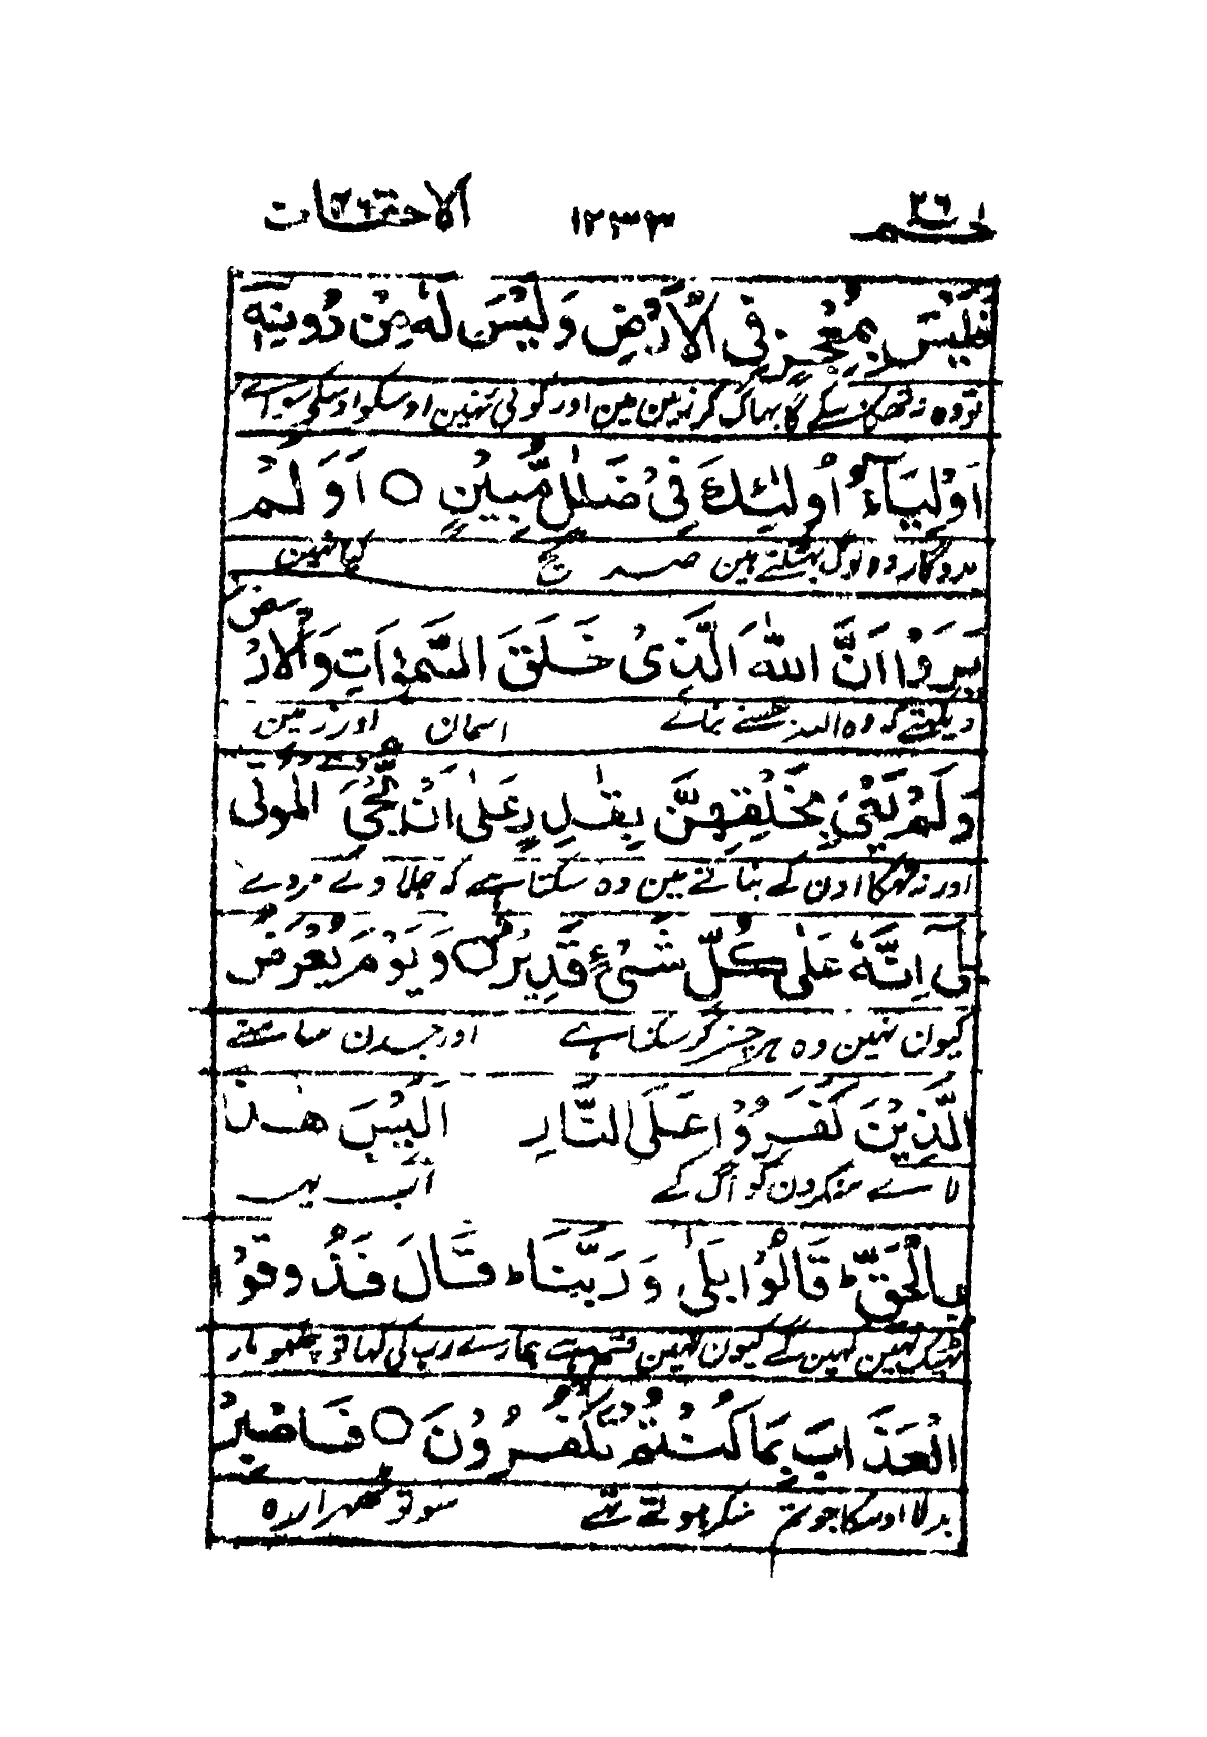 حٰم ٢٦ ١٢٣٣ الاحقاف ٤٦
فَلَيْسَ بِمُعْجِزٍ فِى الْاَرْضِ وَلَيْسَ لَهٗ مِنْ دُوْنِهٖٓ
تو وہ نہ تھکا سکے گا بھاگ کر زمین مین اور کوئی نہین اوسکو اوسکے سوائے
اَوْلِيَآءُ اُولٰٓئِكَ فِىْ ضَلٰلٍ مُّبِيْنٍ ○ اَوَ لَمْ
مددگار وہ لوگ بھٹکتے ہین صریح کیا نہین
يَرَوْا اَنَّ اللّٰهَ الَّذِىْ خَلَقَ السَّمٰوٰاتِ وَالْاَرْضَ
دیکھتے کہ وہ اللہ جسنے بنائے اسمان اور زمین
وَلَمْ يَعْىَ بِخَلْقِهِنَّ بِقٰدِرٍ عَلٰى اَنْ يُّحْىَِ الْمَوْتٰى
اور نہ تھکا اون کے بنانے مین وہ سکتا ہے کہ جلاوے مردے
بَلٰٓى اِنَّهٗ عَلٰى كُلِّ شَىْءٍ قَدِيْرٌ ○ وَ يَوْمَ يُعْرَضُ
کیون نہین وہ ہر چیز کر سکتا ہے اور جسدن سامھنے
الَّذِيْنَ كَفَرُوْا عَلَى النَّارِ اَلَيْسَ هٰذَا
لاے منکرون کو آگ کے اب یہ
بِالْحَقِّ ؕ قَالُوْا بَلٰى وَ رَبِّنَا ؕ قَالَ فَذُوْقُوْا
ٹھیک نہین کہین گے کیون نہین قسم ہے ہمارے رب کی کہا تو چکھو مار
الْعَذَابَ بِمَا كُنْتُمْ تَكْفُرُوْنَ ○ فَاصْبِرْ
بدلا اوسکا جو تم منکر ہوتے تھے سو تو ٹھہرا رہ